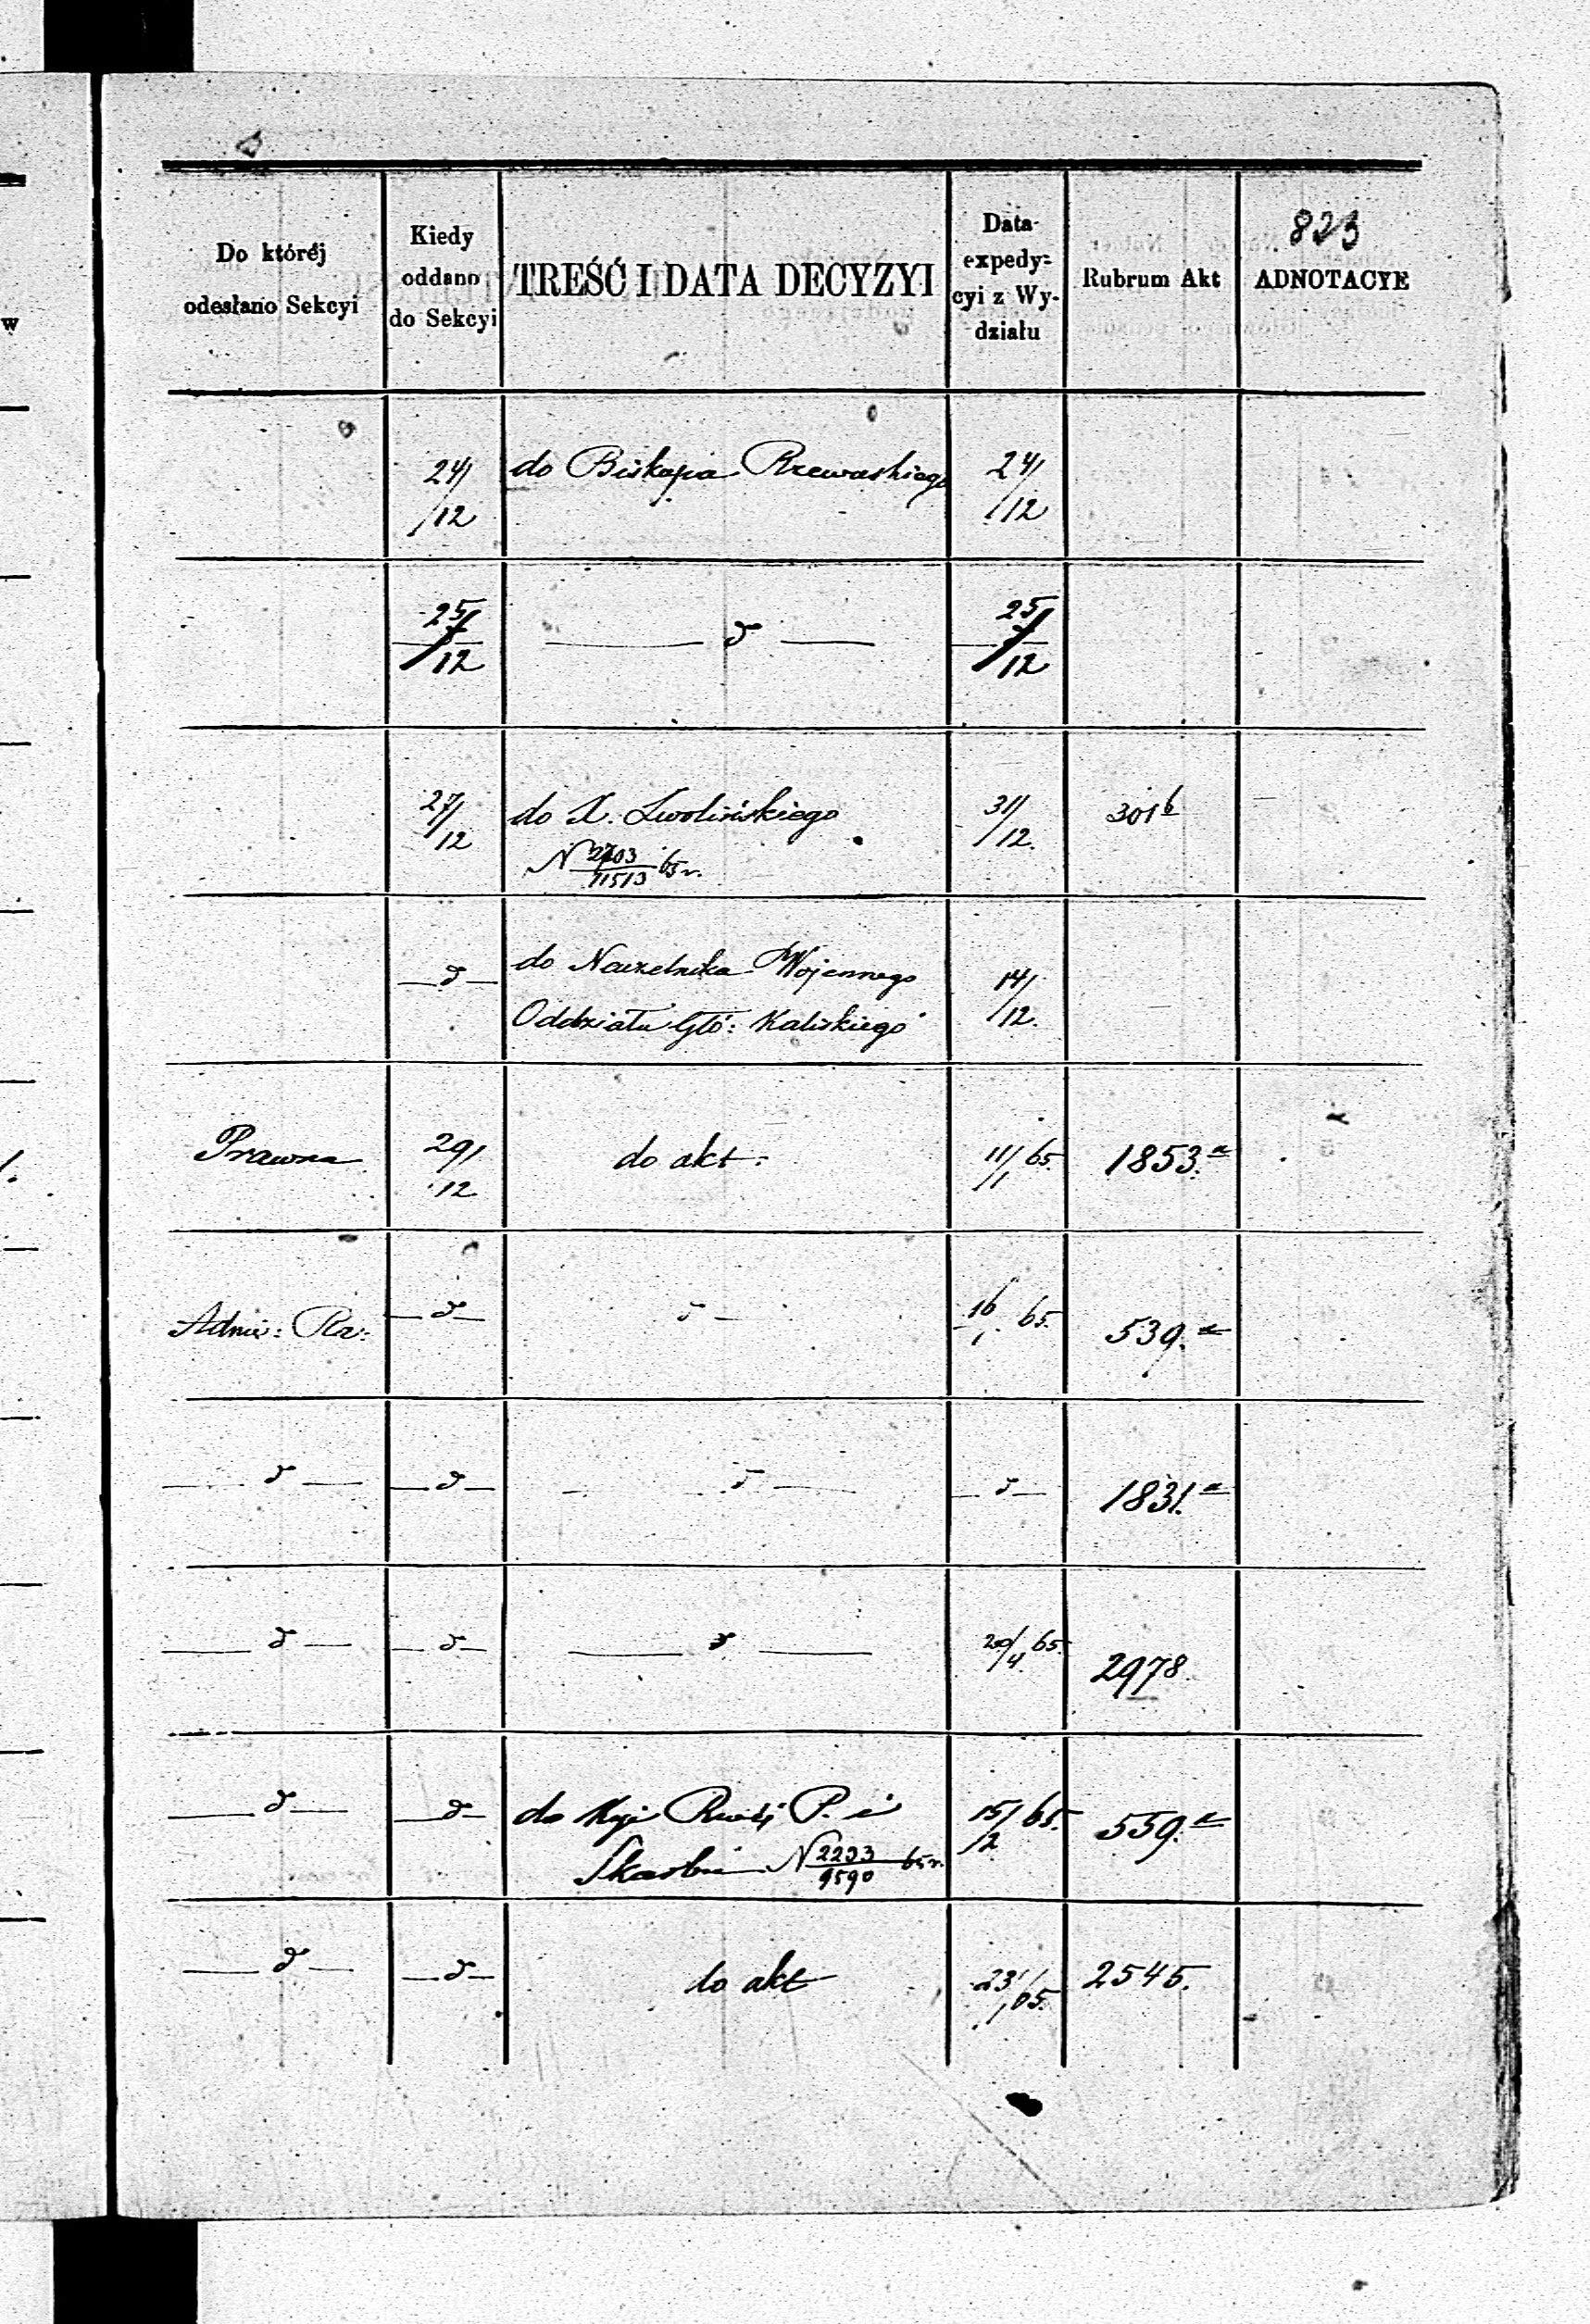 823
Do któréj
odesłano Sekcyi
Kiedy
oddano
do Sekcyi
TREŚĆ I DATA DECYZYI
Data
expedy-
cyi z Wy-
działu
Rubrum Akt
ADNOTACYE
24/12 do Biskupa Rzewuskiego 24/12
25/12 — d — 25/12
27/12 do X. Zwolińskiego 31/12 301 b
N 2703/11513 65 r.
— d — do Naczelnika Wojennego 14/12
Oddziału Głó: Kaliskiego
Prawna 29/12 do akt. 11/1 65. 1853. a
Adm: Rz: — d — d — 16/1 65. 539. a
— d — — d — — d — — d — 1831. a
— d — — d — — d — 20/4 65. 2978
— d — — d — do Kyi Rząd: P. i 15/2 65. 559. a
Skarbu N 2233/9590 65 r.
— d — — d — do akt 23/1 65. 2545.